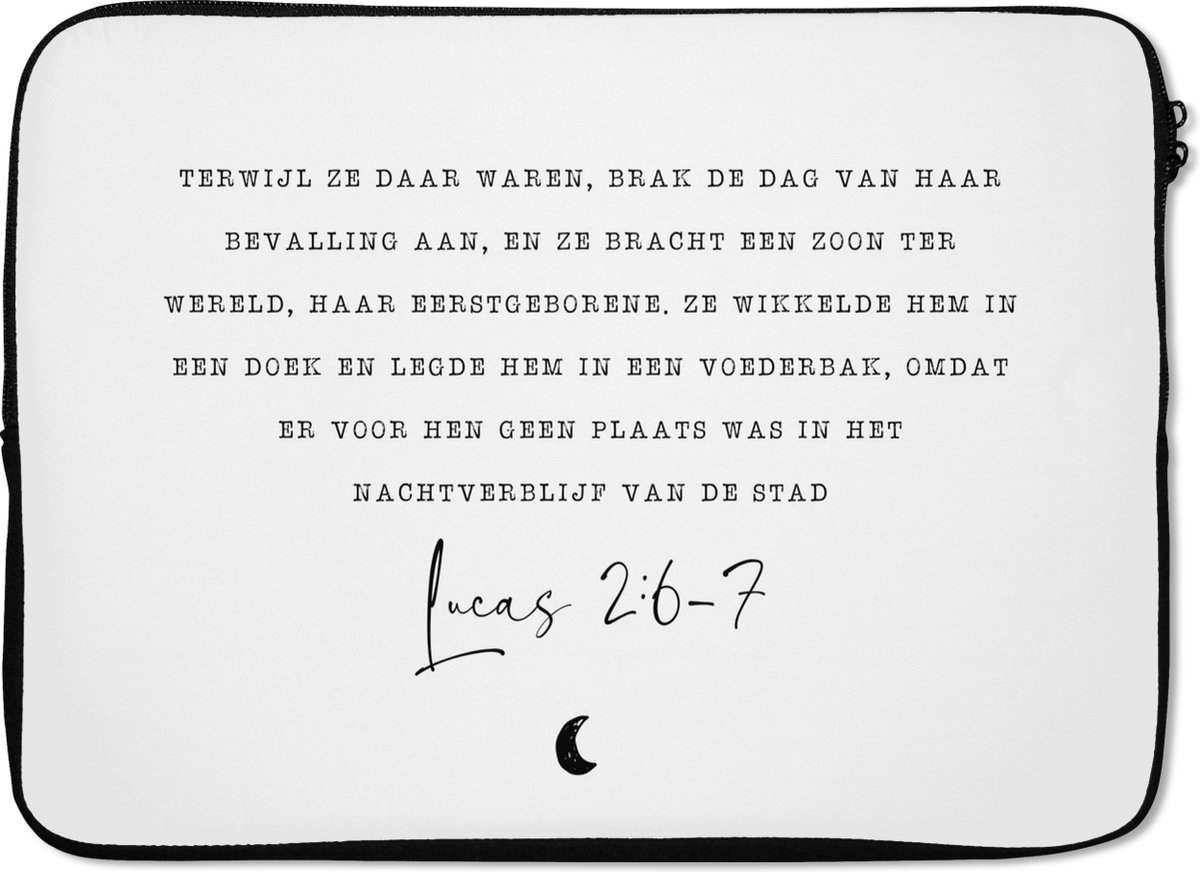 TERWIJL ZE DAAR WAREN, BRAK DE DAG VAN HAAR
BEVALLING AAN, EN ZE BRACHT EEN ZOON TER
WERELD, HAAR EERSTGEBORENE. ZE WIKKELDE HEM IN
EEN DOEK EN LEGDE HEM IN EEN VOEDERBAK, OMDAT
ER VOOR HEN GEEN PLAATS WAS IN HET
NACHTVERBLIJF VAN DE STAD
Lucas 2:6-7